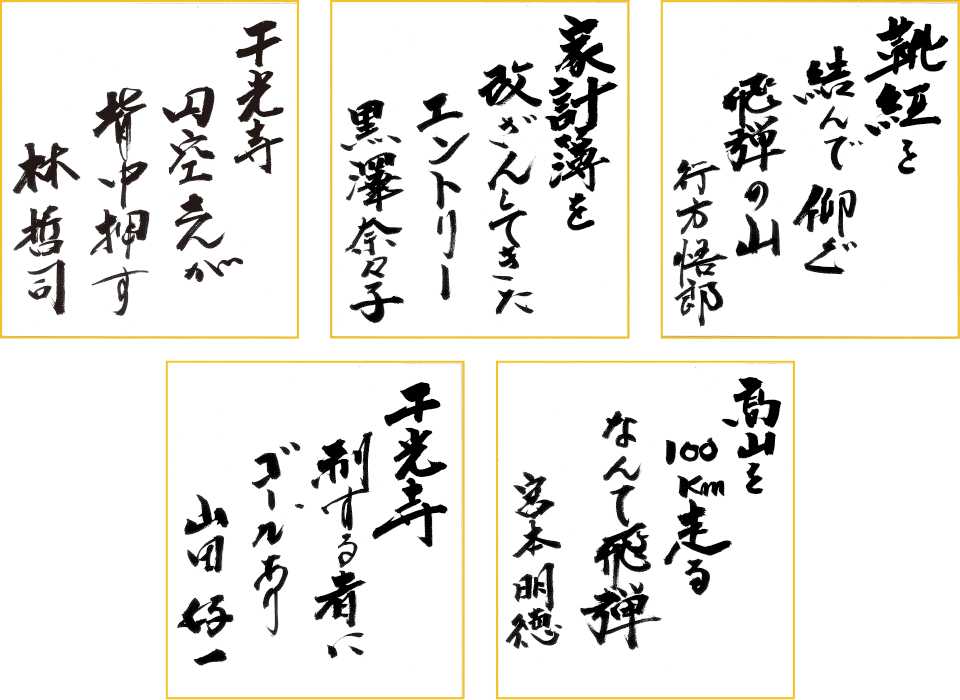 靴紐を
結んで仰ぐ
飛弾の山
行方悟郎
家計簿を
改ざんしてきた
エントリー
黒澤奈々子
千光寺
円空さんが
背中押す
林哲司
高山を
100Km走る
なんて飛弾
宮本明徳
千光寺
制する者に
ゴールあり
山田好一